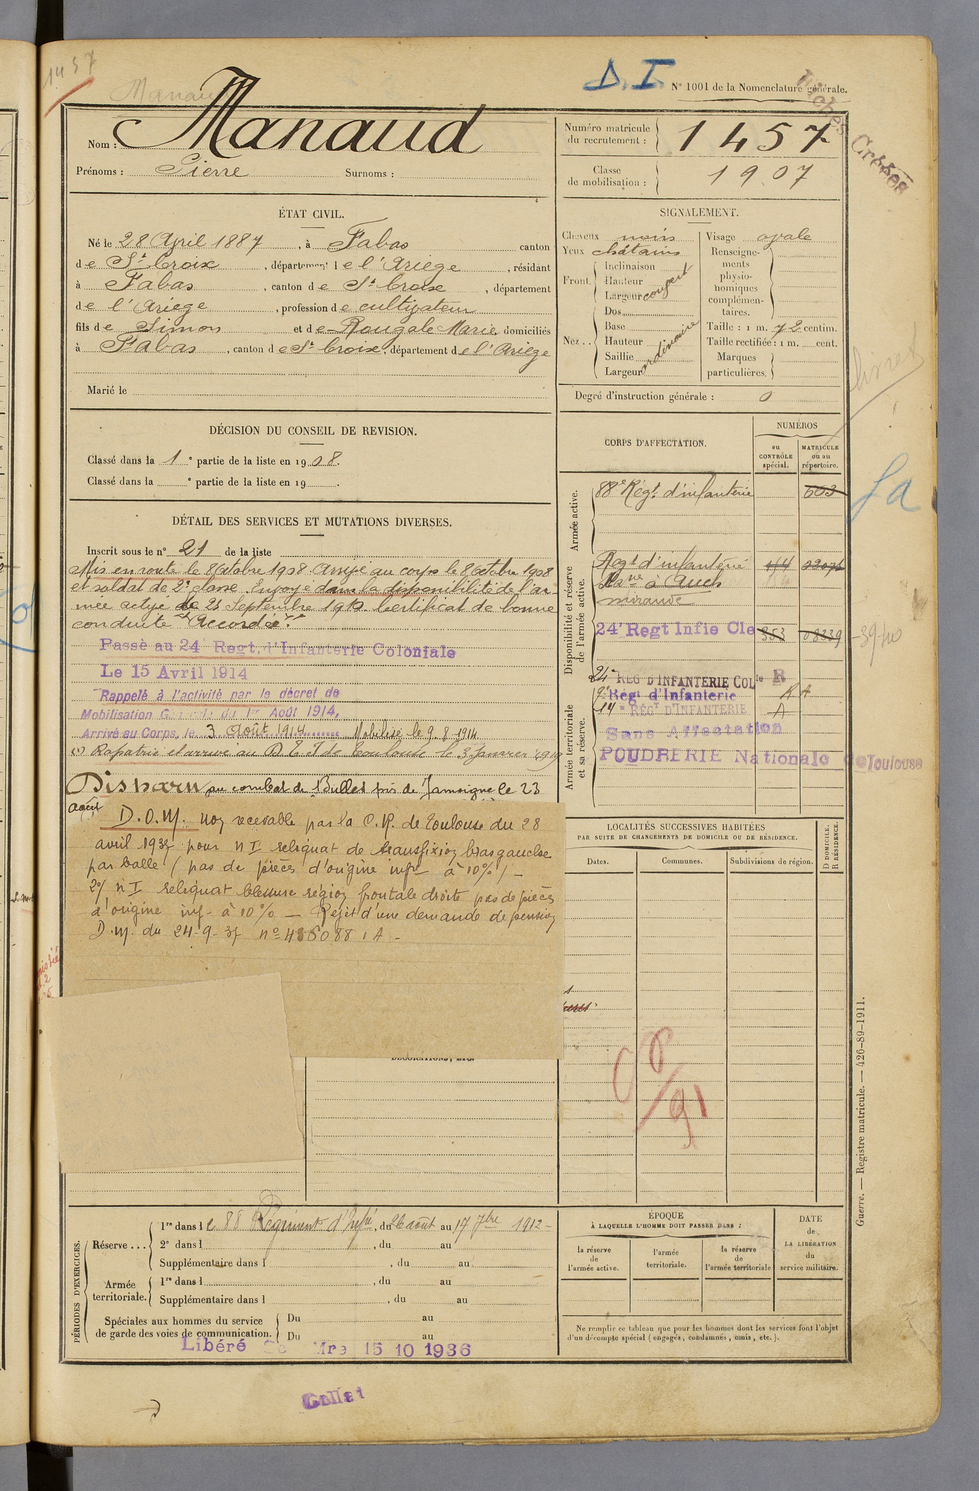 1457
Manaud
D.I.
N° 1001 de la Nomenclature générale.
Nom : Manaud
Prénoms : Pierre Surnoms :
Numéro matricule du recrutement : 1457
Classe de mobilisation : 1907
ÉTAT CIVIL.
Né le 28 April 1887, à Fabas canton
de Ste Croix, département de l'Ariège, résidant
à Fabas, canton de Ste Croix, département
de l'Ariège, profession de cultivateur
fils de Simon et de Rougale Marie domiciliés
à Fabas, canton de Ste Croix, département de l'Ariège
Marié le
SIGNALEMENT.
Cheveux noirs
Yeux châtains
Front. Inclinaison
Hauteur
Largeur
Nez... Dos
Base
Hauteur
Saillie
Largeur
ordinaire
Visage ovale
Renseignements physionomiques complémentaires.
Taille : 1 m. 72 centim.
Taille rectifiée : 1 m. cent.
Marques particulières.
Degré d'instruction générale :
DÉCISION DU CONSEIL DE REVISION.
Classé dans la 1e partie de la liste en 1908.
Classé dans la e partie de la liste en 19
DÉTAIL DES SERVICES ET MUTATIONS DIVERSES.
Inscrit sous le n° 21 de la liste
Mis en route le 8 Octobre 1908 Arrivé au corps le 8 Octobre 1908
et soldat de 2e classe. Envoyé dans la disponibilité de l'ar
mée active le 25 Septembre 1910. Certificat de bonne
conduite "Accordé".
Passé au 24 Regt. d'Infanterie Coloniale
Le 15 Avril 1914
Rappelé à l'activité par le décret de
Mobilisation Générale du 1er Août 1914,
Arrivé au Corps, le 3 Août 1914 Mobilisé le 9.8.1914
Rapatrié et arrivé au D. I. de Toulouse le 3 Janvier 1919
Disparu au combat de Bulles près de Jamoigne le 23
août
D.O.M. non recevable par la C.R. de Toulouse du 28
avril 1937 pour n I reliquat de transfixion bras gauche
par balle (pas de pièces d'origine infr à 10%) -
2°/ n I reliquat blessure région frontale droite pas de pièces
d'origine inf. à 10% — Rejet d'une demande de pension
D.M. du 24-9-37 n° 436088 1A -
CORPS D'AFFECTATION.
NUMÉROS
au CONTRÔLE spécial.
MATRICULE ou au répertoire.
Armée active.
88e Régt d'infanterie
Disponibilité et réserve de l'armée active.
Regt d'infanterie
à Auch
mirande
24e Regt Infie Cle 353 08239
Armée territoriale et sa réserve.
24e REG D'INFANTERIE COLle R
Régt d'Infanterie
14e REGt D'INFANTERIE A
Sans Affectation
POUDRERIE Nationale de Toulouse
LOCALITÉS SUCCESSIVES HABITÉES
PAR SUITE DE CHANGEMENTS DE DOMICILE OU DE RÉSIDENCE.
Dates. Communes. Subdivisions de région. D DOMICILE. R RÉSIDENCE.
DÉCORATIONS, ETC.
PÉRIODES D'EXERCICES.
Réserve... 1re dans le 88 Régiment d'Infie, du 26 août au 17 7bre 1912-
2e dans l , du au
Supplémentaire dans l , du au
Armée territoriale. 1re dans l , du au
Supplémentaire dans l , du au
Spéciales aux hommes du service de garde des voies de communication. Du au
Du au
Libéré Mre 15 10 1936
ÉPOQUE
À LAQUELLE L'HOMME DOIT PASSER DANS :
la réserve de l'armée active.
l'armée territoriale.
la réserve de l'armée territoriale
DATE de LA LIBÉRATION du service militaire.
Ne remplir ce tableau que pour les hommes dont les services font l'objet
d'un décompte spécial (engagés, condamnés, omis, etc.).
Guerre. — Registre matricule. — 426-89-1911.